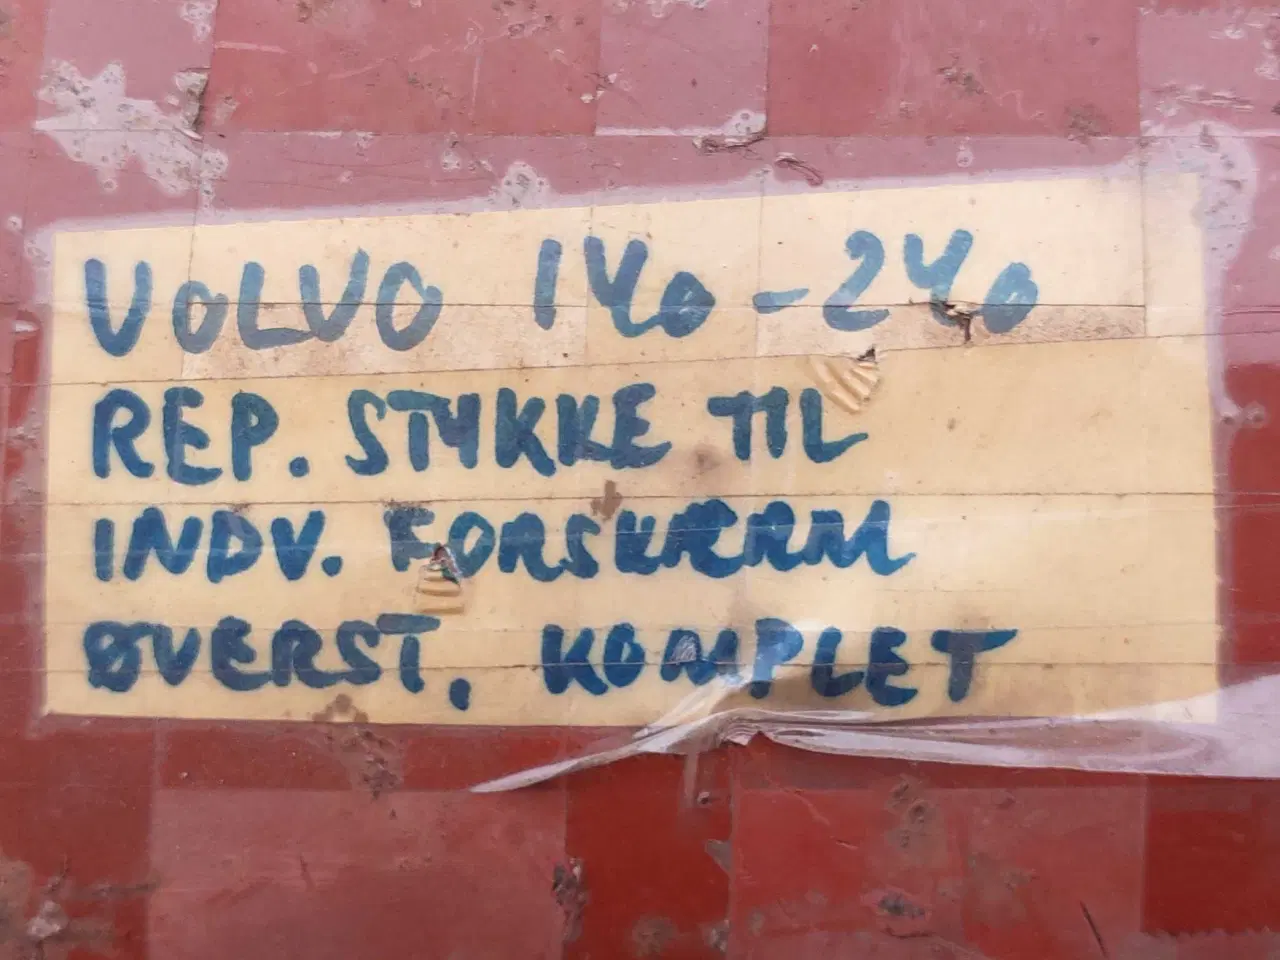 VOLVO 140-240
REP. STYKKE TIL
INDV. FORSKÆRM
ØVERST, KOMPLET